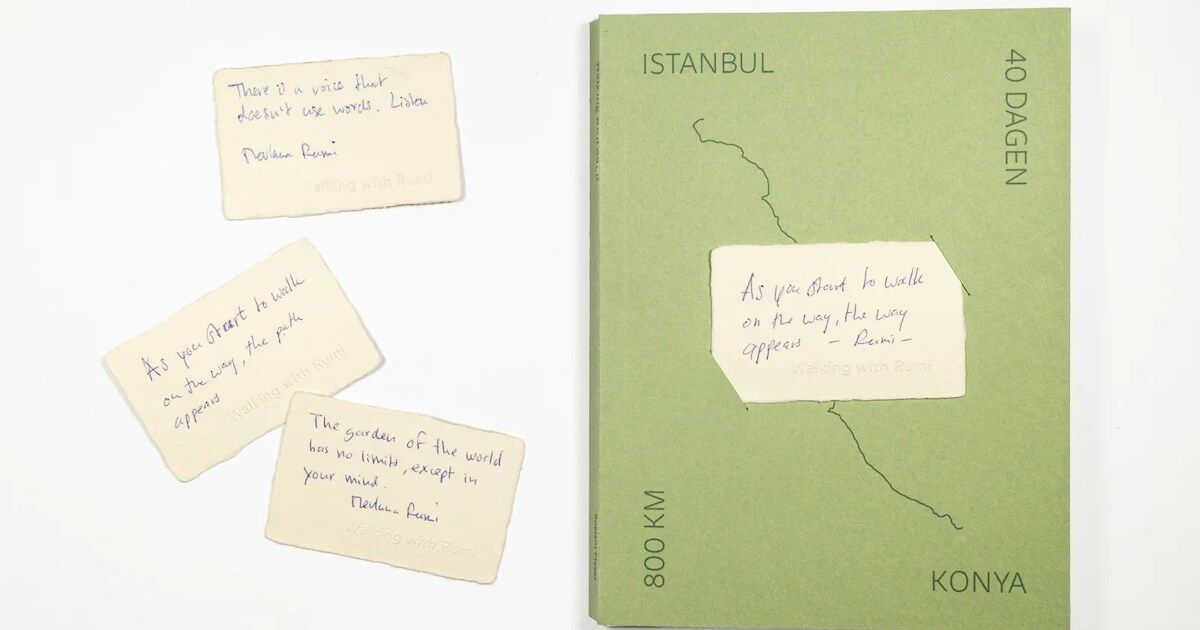 There is a voice that
doesn't use words. Listen
Mevlana Rumi
Walking with Rumi
As you start to walk
on the way, the path
appears
Walking with Rumi
The garden of the world
has no limits, except in
your mind.
Mevlana Rumi
Walking with Rumi
ISTANBUL
40 DAGEN
As you start to walk
on the way, the way
appears - Rumi -
Walking with Rumi
800 KM
KONYA